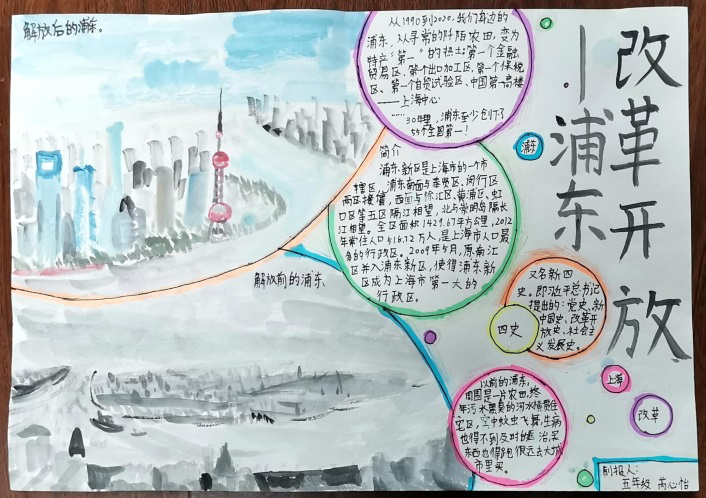 解放后的浦东。
改革开放
—浦东
从1990到2020,我们身边的
浦东,从寻常的阡陌农田,变为
特产“第一”的热土:第一个金融
贸易区、第一个出口加工区、第一个保税
区、第一个自贸试验区、中国第一高楼
——上海中心
……30年里,浦东至少创下了
55个全国第一!
浦东
简介
浦东新区是上海市的一个市
辖区,浦东南面与奉贤区、闵行区
两区接壤,西面与徐汇区、黄浦区、虹
口区等五区隔江相望,北与崇明岛隔长
江相望。全区面积1429.67平方公里,2012
年常住人口518.72万人,是上海市人口最
多的行政区。2009年5月,原南汇
区并入浦东新区,使得浦东新
区成为上海市第一大的
行政区。
解放前的浦东
又名新四
史。即习近平总书记
提出的:党史、新
中国史、改革开
放史、社会主
义发展史。
四史
以前的浦东,
周围是一片农田,终
年污水黑臭的河水横贯住
宅区,空中蚊虫飞舞,生病
也得不到及时的医治,买
东西也得跑很远去大城
市里买。
上海
改革
制报人:
五年级 芮心怡